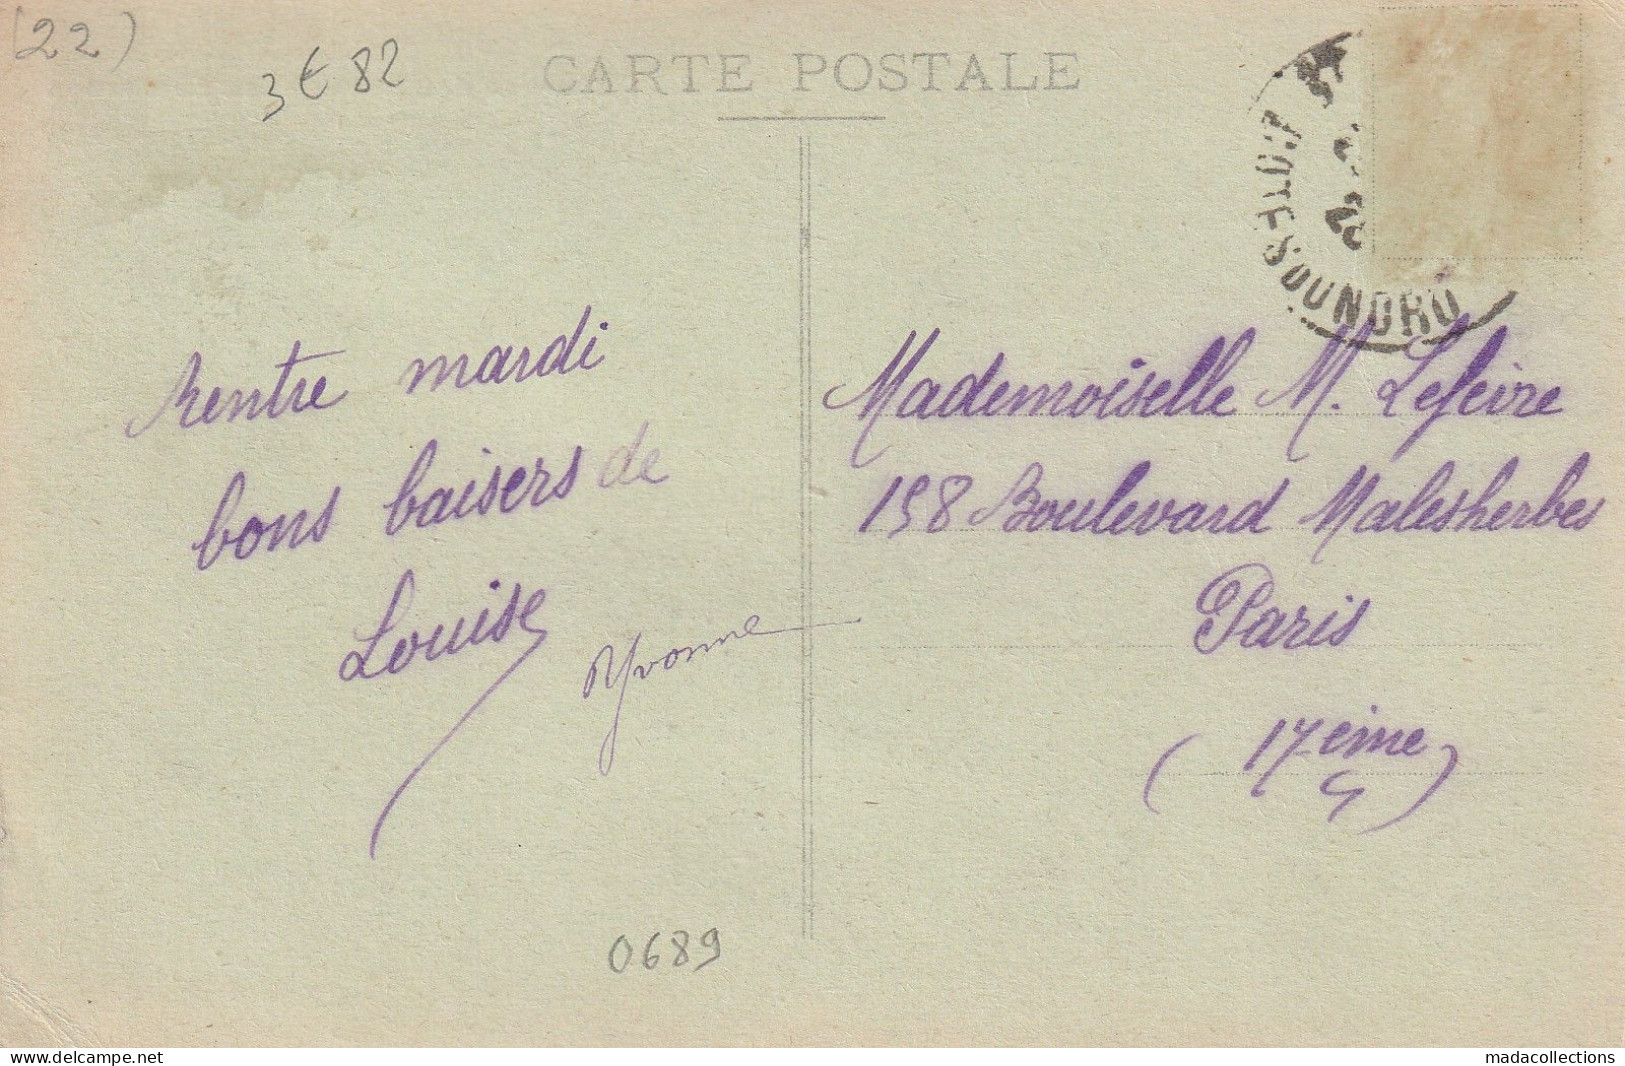 (22)
3€82
CARTE POSTALE
Rentre mardi
bons baisers de
Louise
Yvonne
Mademoiselle M. Lefeivre
158 Boulevard Malesherbes
Paris
(17eime)
0689
www.delcampe.net
madacollections